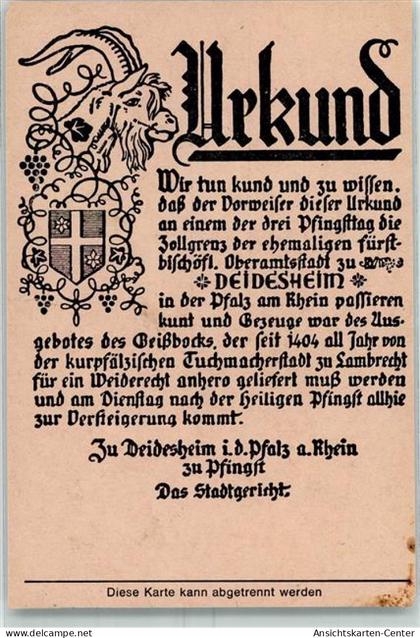 Urkund
Wir tun kund und zu wissen.
daß der Vorweiser dieser Urkund
an einem der drei Pfingsttag die
Zollgrenz der ehemaligen fürst-
bischöfl. Oberamtsstadt zu
DEIDESHEIM
in der Pfalz am Rhein passieren
kunt und Gezeuge war des Aus-
gebotes des Geißbocks, der seit 1404 all Jahr von
der kurpfälzischen Tuchmacherstadt zu Lambrecht
für ein Weiderecht anhero geliefert muß werden
und am Dienstag nach der Heiligen Pfingst allhie
zur Versteigerung kommt.
Zu Deidesheim i.d.Pfalz a.Rhein
zu Pfingst
Das Stadtgericht.
Diese Karte kann abgetrennt werden
Ansichtskarten-Center